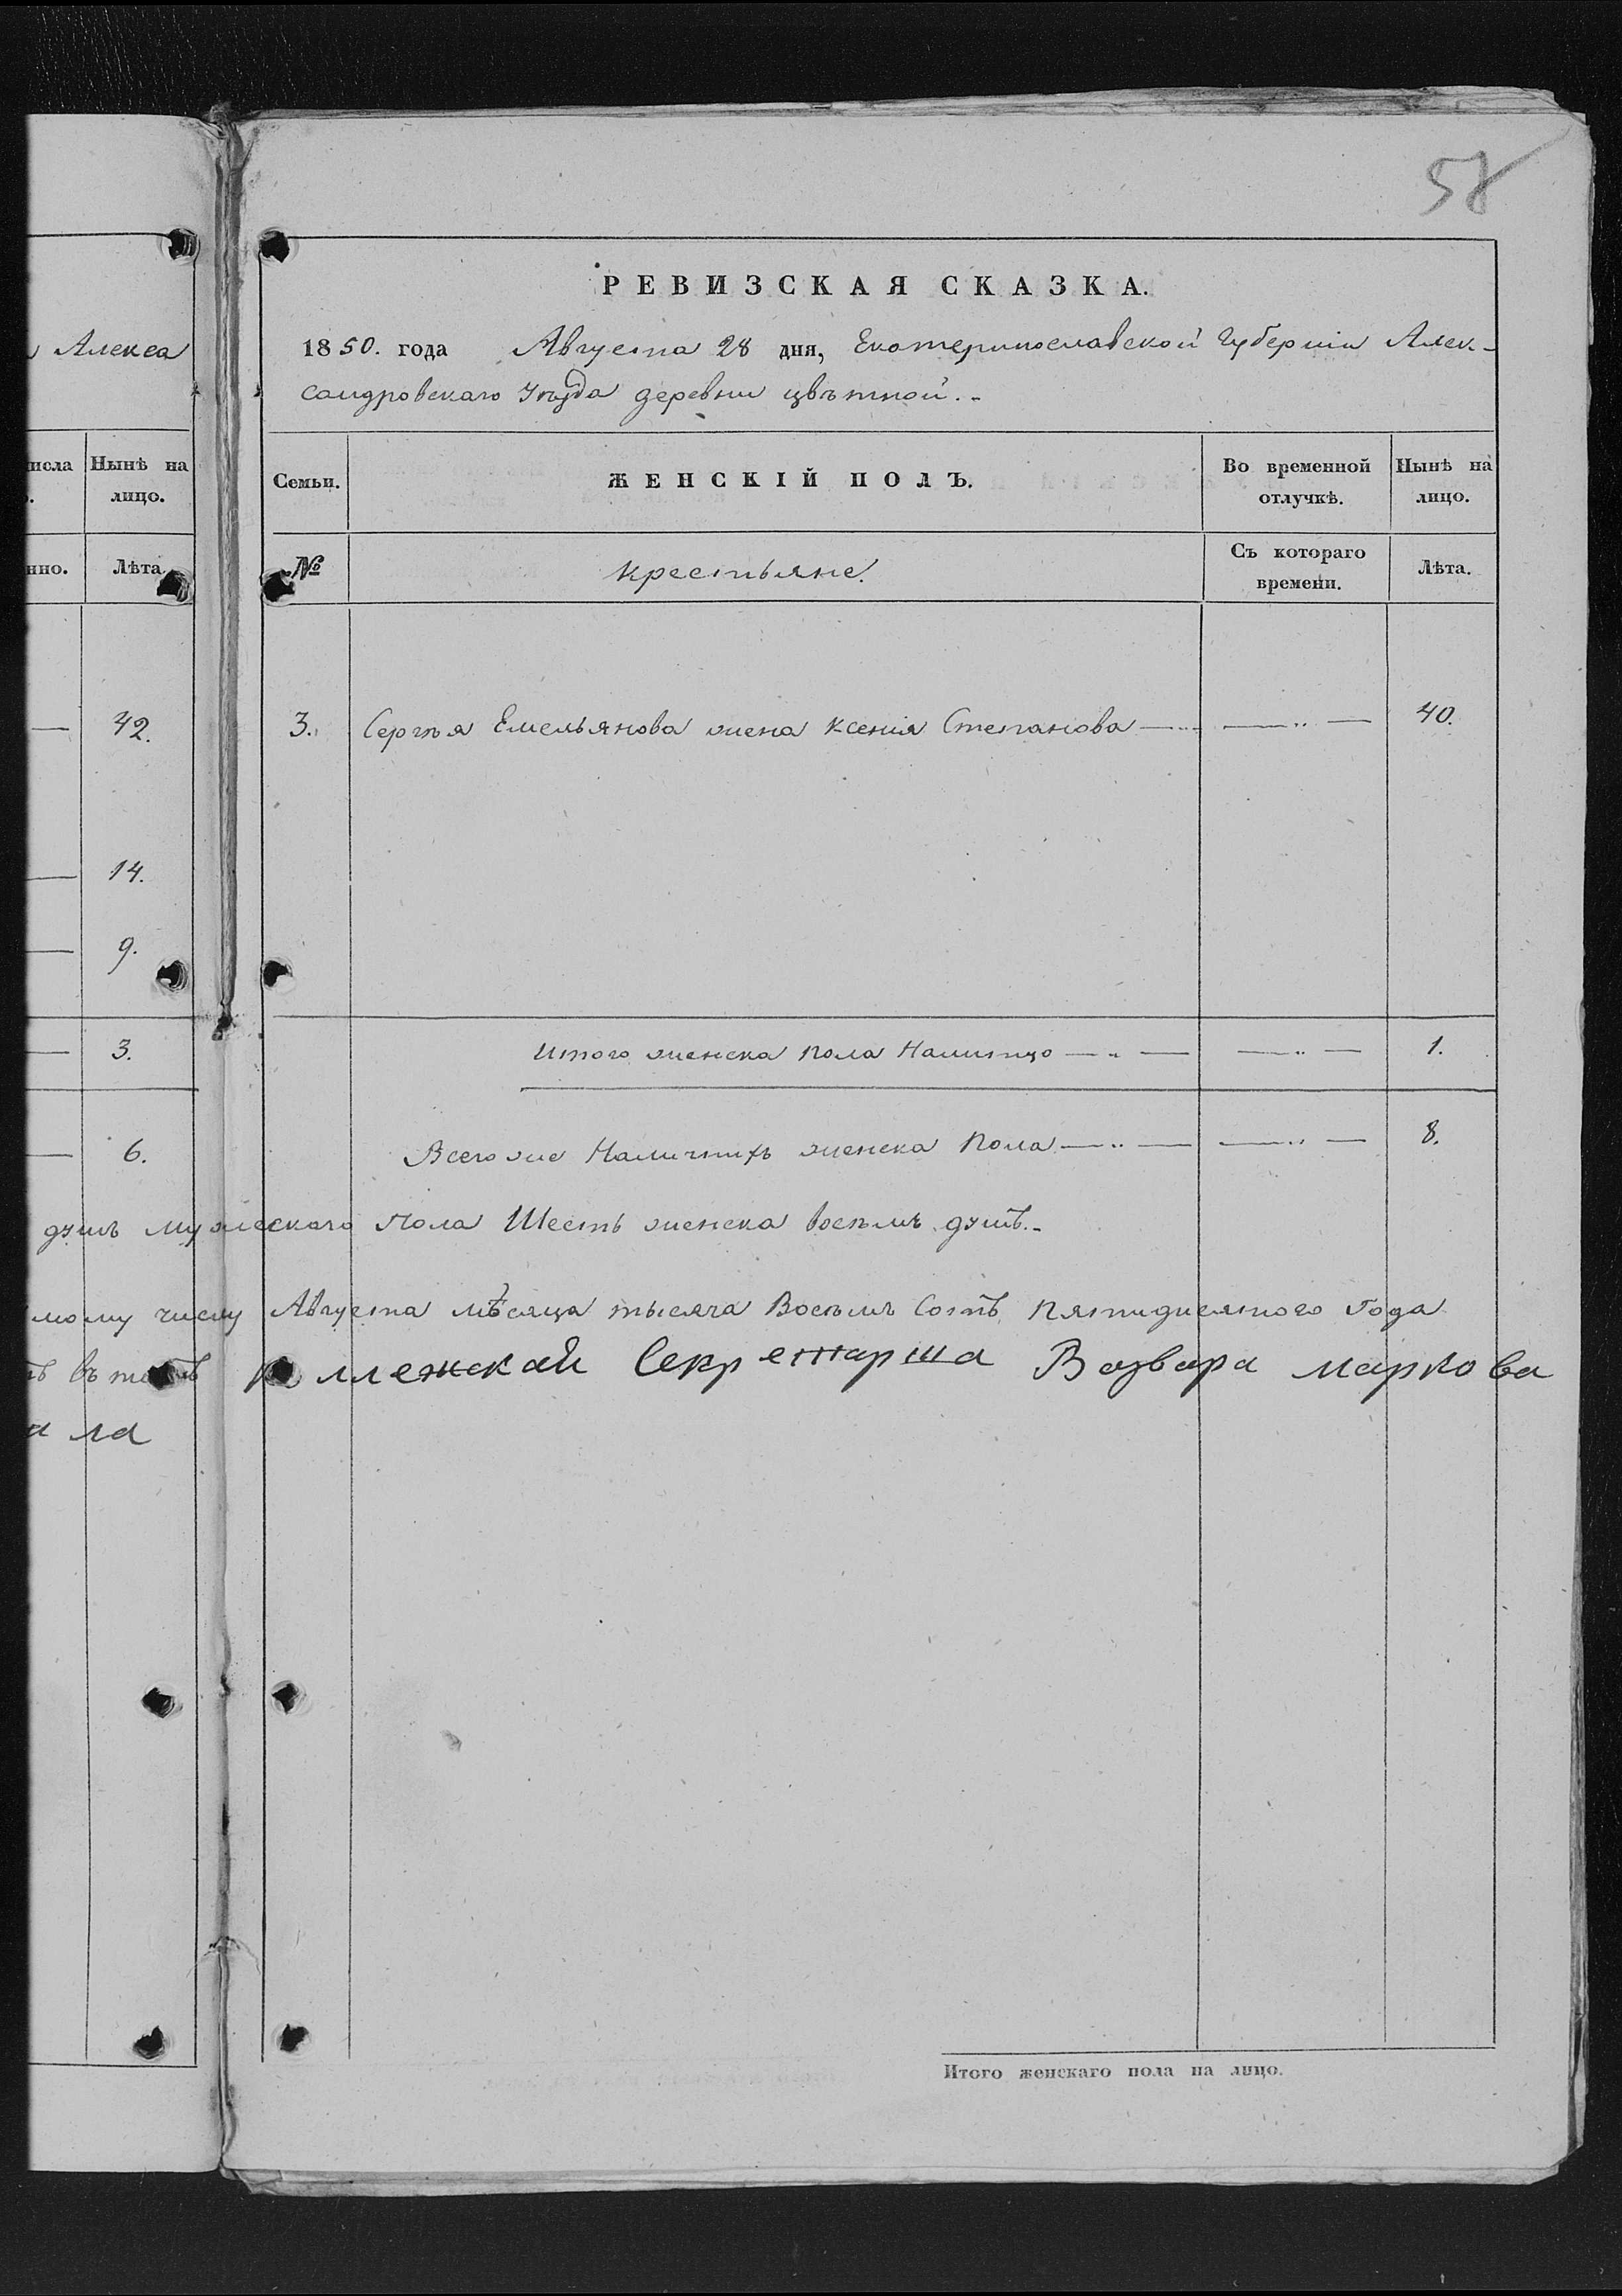 58
РЕВИЗСКАЯ СКАЗКА.
1850. года Августа 28 дня, Екатеринославской Губерніи Алек-
сандровскаго Уѣзда деревни цвѣтной.-
Алекса
исла
Нынѣ на
лицо.
нно.
Лѣта.
Семьи.
ЖЕНСКІЙ ПОЛЪ.
Во временной
отлучкѣ.
Нынѣ на
лицо.
№
крестьяне.
Съ котораго
времени.
Лѣта.
42.
3. Сергѣя Емельянова жена Ксенія Степанова — „ — 40.
14.
9.
3.
Итого женска пола Налицо — „ — — „ — 1.
6.
Всего же Наличнихъ женска Пола — „ — — „ — 8.
душъ мужескаго пола Шесть женска восемъ душъ.-
мому числу Августа мѣсяца тысяча Восемъ Сотъ Пятидисятого Года
въ
ллежской Секретарша Варвара маркова
ла
Итого женскаго пола на лицо.